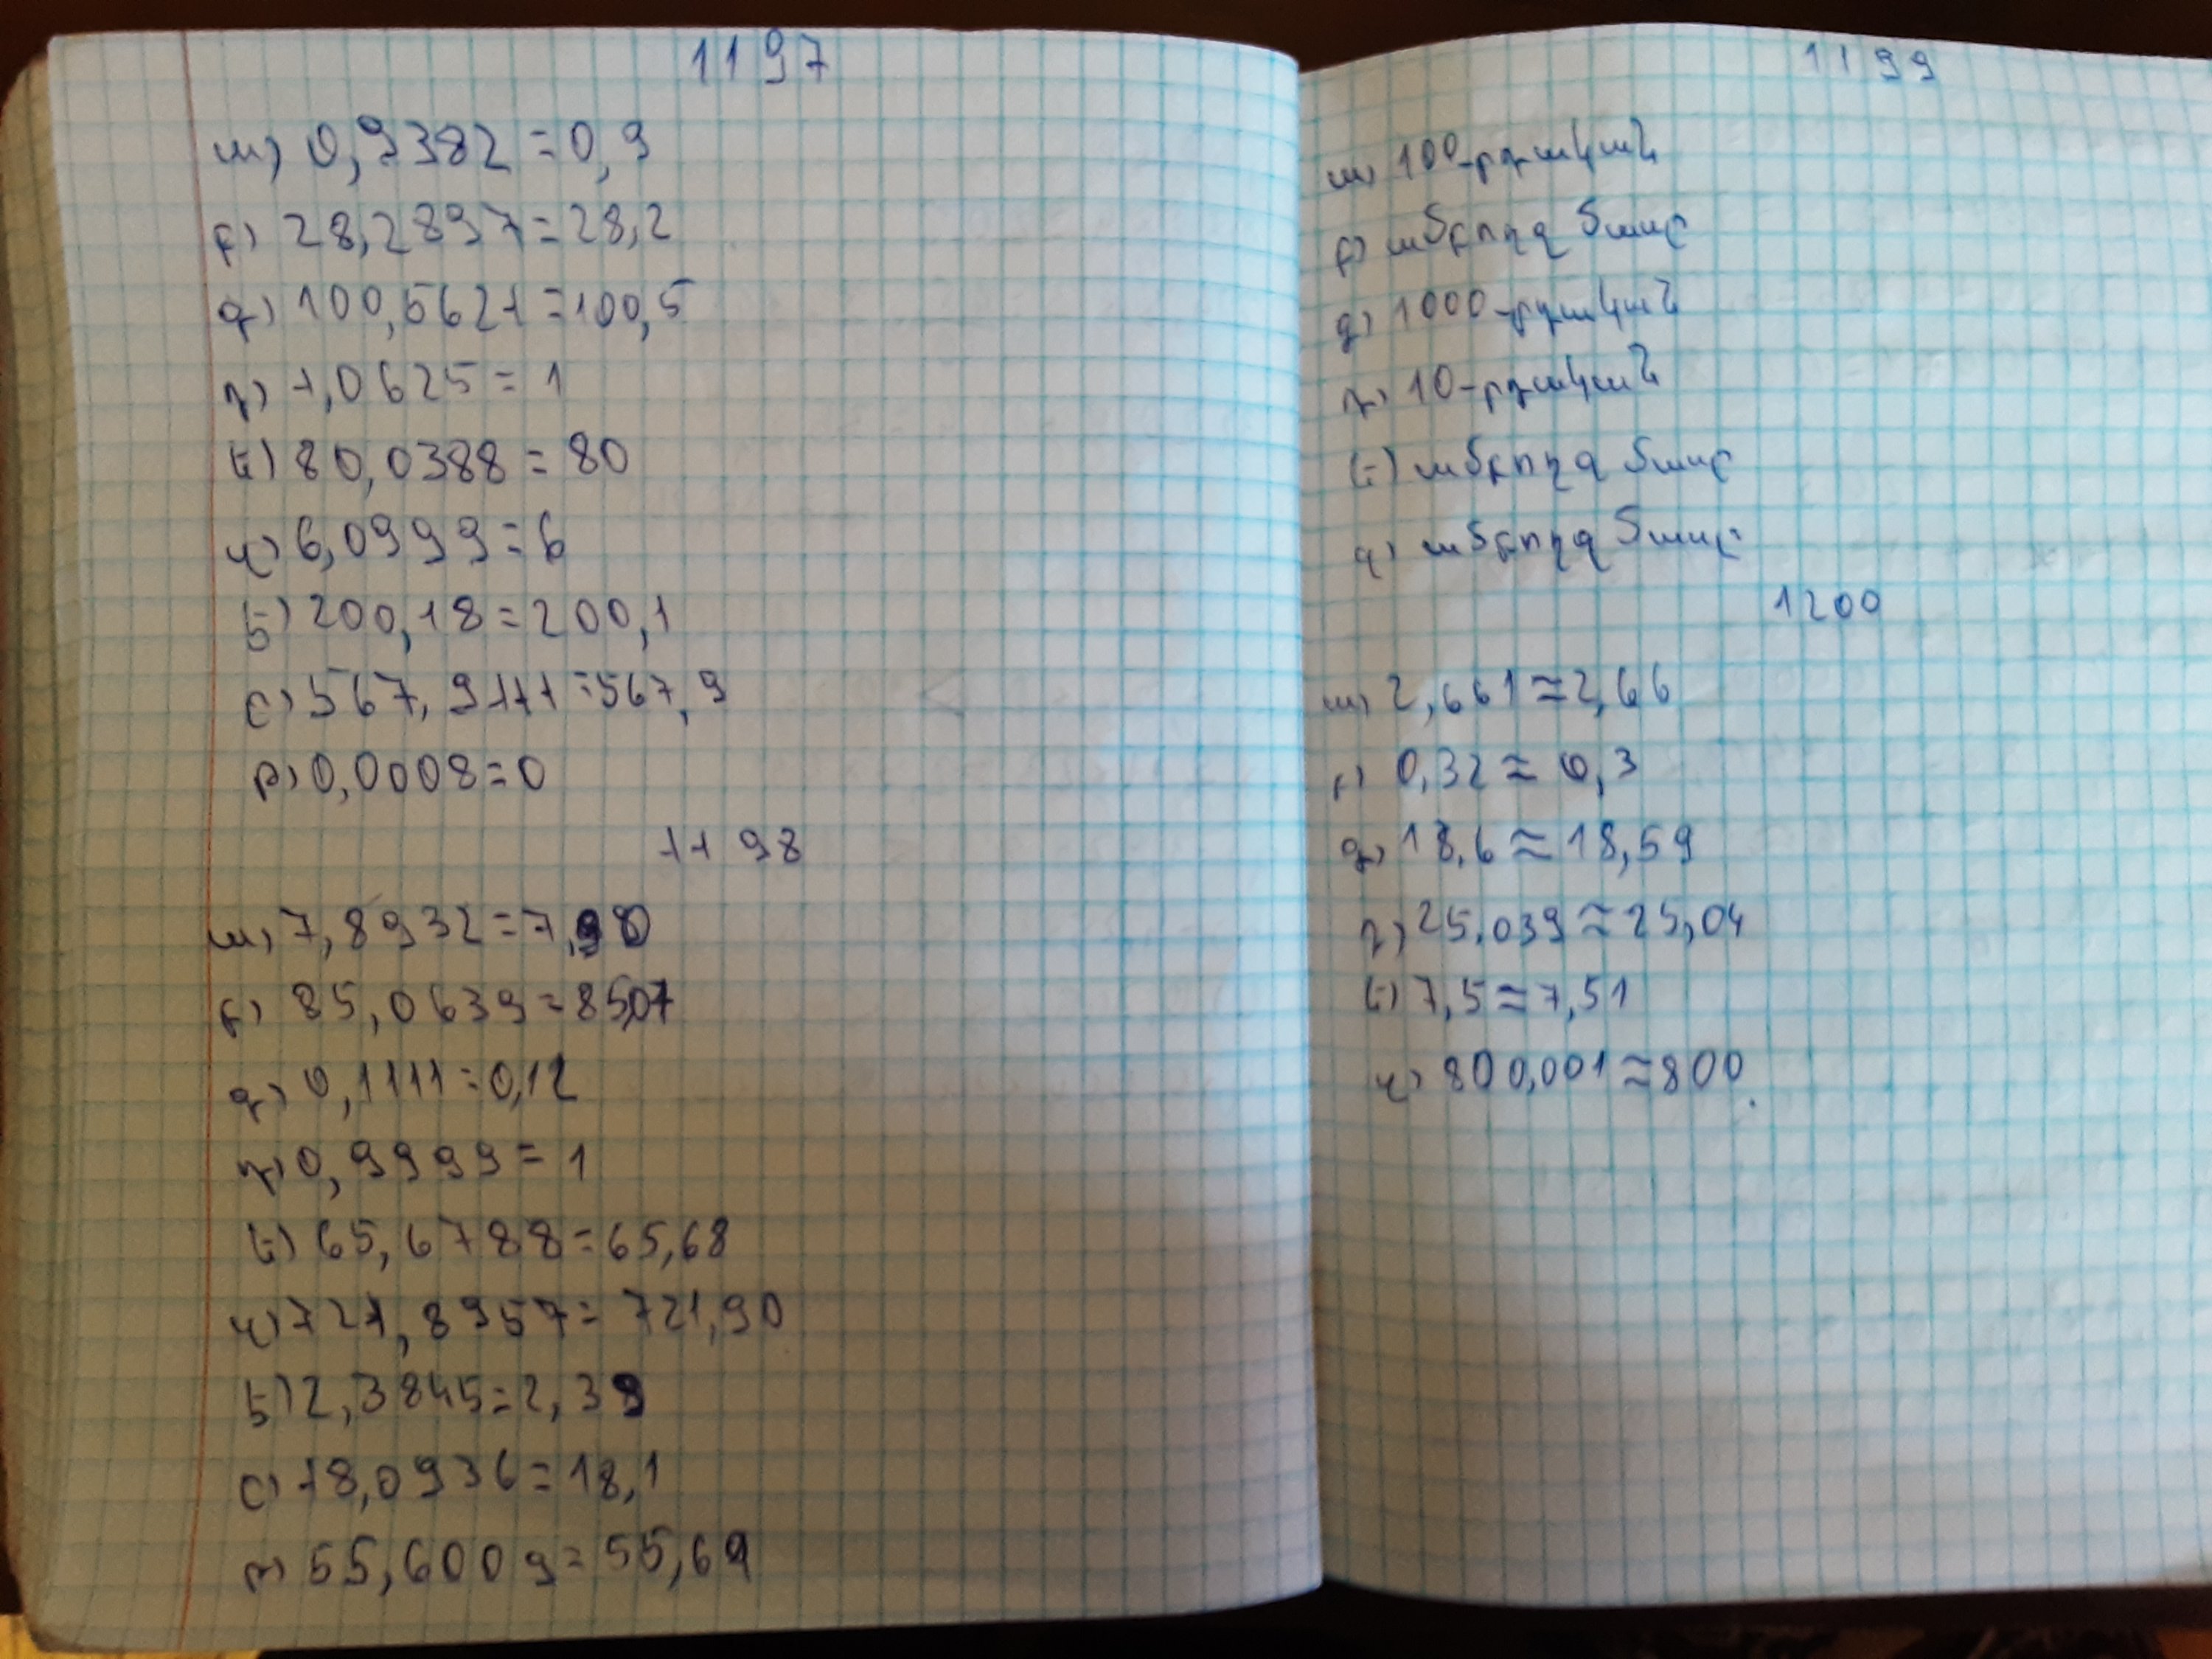 1197
ա) 0,9382 = 0,9
բ) 28,2897 = 28,2
գ) 100,5621 = 100,5
դ) 1,0625 = 1
ե) 80,0388 = 80
զ) 6,0999 = 6
է) 200,18 = 200,1
ը) 567,9111 = 567,9
թ) 0,0008 = 0
1198
ա) 7,8932 = 7,90
բ) 85,0639 = 85,07
գ) 0,1111 = 0,12
դ) 0,9999 = 1
ե) 65,6788 = 65,68
զ) 721,8957 = 721,90
է) 2,3845 = 2,39
ը) 18,0936 = 18,1
թ) 55,6009 = 55,69
1199
ա) 100-րդական
բ) ամբողջ մաս
գ) 1000-րդական
դ) 10-րդական
ե) ամբողջ մաս
զ) ամբողջ մաս:
1200
ա) 2,661 ≈ 2,66
բ) 0,32 ≈ 0,3
գ) 18,6 ≈ 18,59
դ) 25,039 ≈ 25,04
ե) 7,5 ≈ 7,51
զ) 800,001 ≈ 800